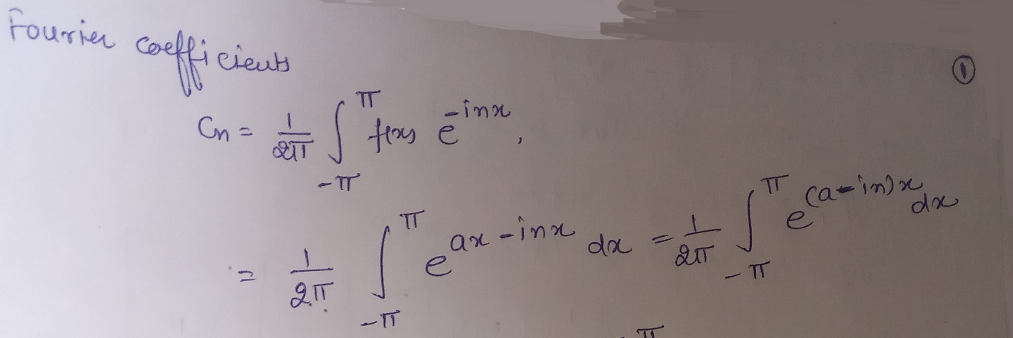 Fourier coefficients
①
Cn = 1/2π ∫_{-π}^{π} f(x) e^{-inx},
= 1/2π ∫_{-π}^{π} e^{ax-inx} dx = 1/2π ∫_{-π}^{π} e^{(a-in)x} dx
π